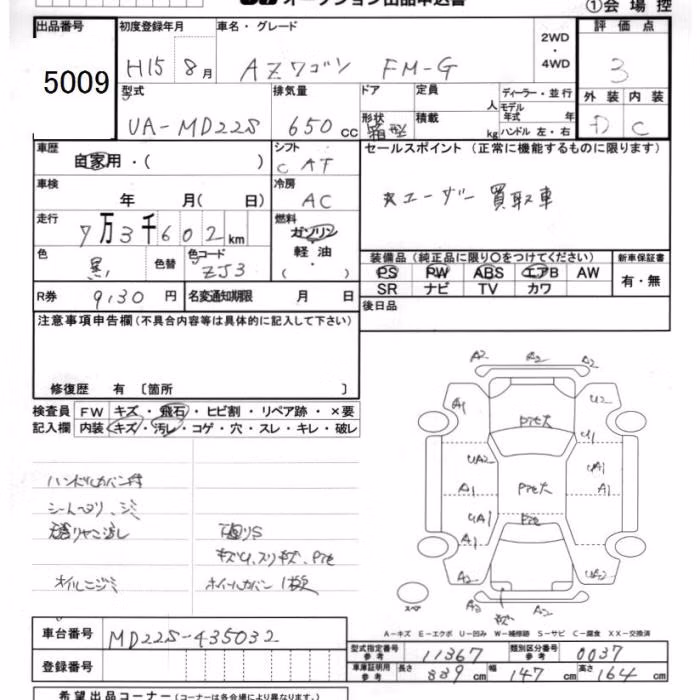 オークション出品申込書 ①会場控
出品番号 初度登録年月 車名・グレード 2WD・4WD 評価点
5009 H15 8月 AZワゴン FM-G 3
型式 排気量 ドア 定員 人 ディーラー・並行 外装 内装
UA-MD22S 650cc 形状 箱型 積載 kg モデル年式 年 ハンドル 左・右 D C
車歴 自家用・( ) シフト C AT セールスポイント (正常に機能するものに限ります)
車検 年 月( 日) 冷房 AC ユーザー買取車
走行 7万3千602km 燃料 ガソリン 軽油・( )
色 黒 色替 色コード ZJ3 装備品 (純正品に限り○をつけてください) 新車保証書
PS PW ABS エアB AW 有・無
SR ナビ TV カワ
R券 9130円 名変通知期限 月 日 後日品
注意事項申告欄 (不具合内容等は具体的に記入して下さい)
修復歴 有 〔箇所 〕
検査員 FW キズ・飛石・ヒビ割・リペア跡・×要
記入欄 内装 キズ・汚レ・コゲ・穴・スレ・キレ・破レ
A2 A2 A2
A1 U2
U1
UA2 UA1
A1 A1
UA1
A1
A2 UA2
A2 A2
スペア
ハンドルカバー付
シートヘタリ、シミ
下廻りS
キズU、スリキズ、
オイルニジミ ホイールカバー1枚欠
A-キズ E-エクボ U-凹み W-補修跡 S-サビ C-腐食 XX-交換済
車台番号 MD22S-435032
型式指定番号 参考 11367 類別区分番号 参考 0037
登録番号 車庫証明用 参考 長さ 339cm 幅 147cm 高さ 164cm
希望出品コーナー (コーナーは各会場により異なります。)